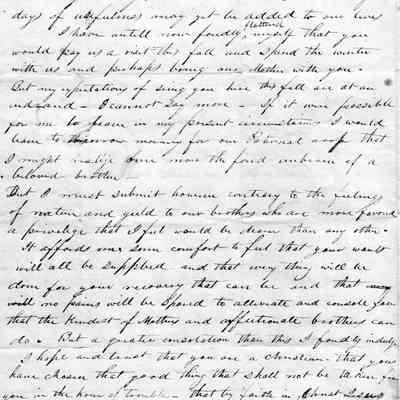 days of usefulness may yet be added to our lives
I have untill now fondly flattered myself that you
would pay us a visit this fall and spend the winter
with us and perhaps bring our Mother with you.
But my expectations of seeing you here this fall are at an
end and - I cannot say more - If it were possible
for me to leave in my present circumstances I would
leave to morrow morning for our Paternal roof that
I might realize once more the fond embrace of a
beloved brother -
But I must submit however contrary to the feelings
of nature and yeild to our brothers who are more favored
a priviledge that I feel would be dearer than any other.
It affords me some comfort to feel that your wants
will all be supplied and that every thing will be
done for your recovery that can be and that
no pains will be spared to alleviate and console you
that the kindest of Mothers and affectionate brothers can
do. But a greater consolation than this I fondly indulge
I hope and trust that you are a christian - that you
have chosen that good thing that shall not be taken from
you in the hour of trouble - that by faith in Christ Jesus